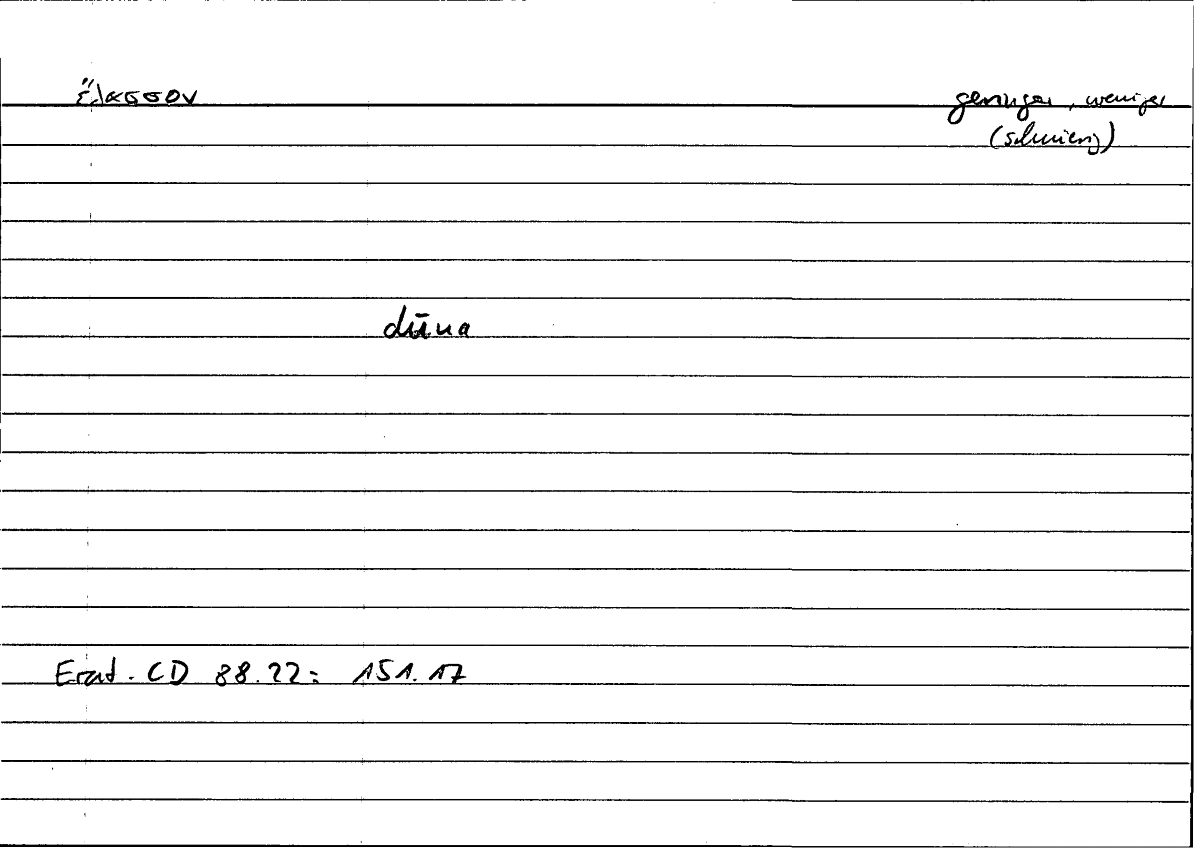 ἔλασσον geringer, weniger
(schwierig)
dūna
Erat. CD 88.22: 151.17